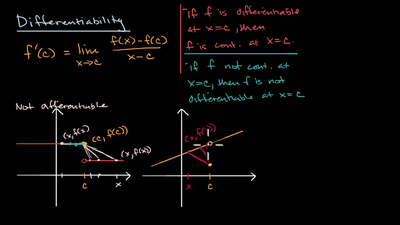 Differentiability
f'(c) = lim x→c f(x)-f(c) / x-c
-If f is differentiable
at x=c, then
f is cont. at x=c
-if f not cont. at
x=c, then f is not
differentiable at x=c
Not differentiable
(x,f(x))
(c,f(c))
(x,f(x))
c
x
(x,f(x))
x
c